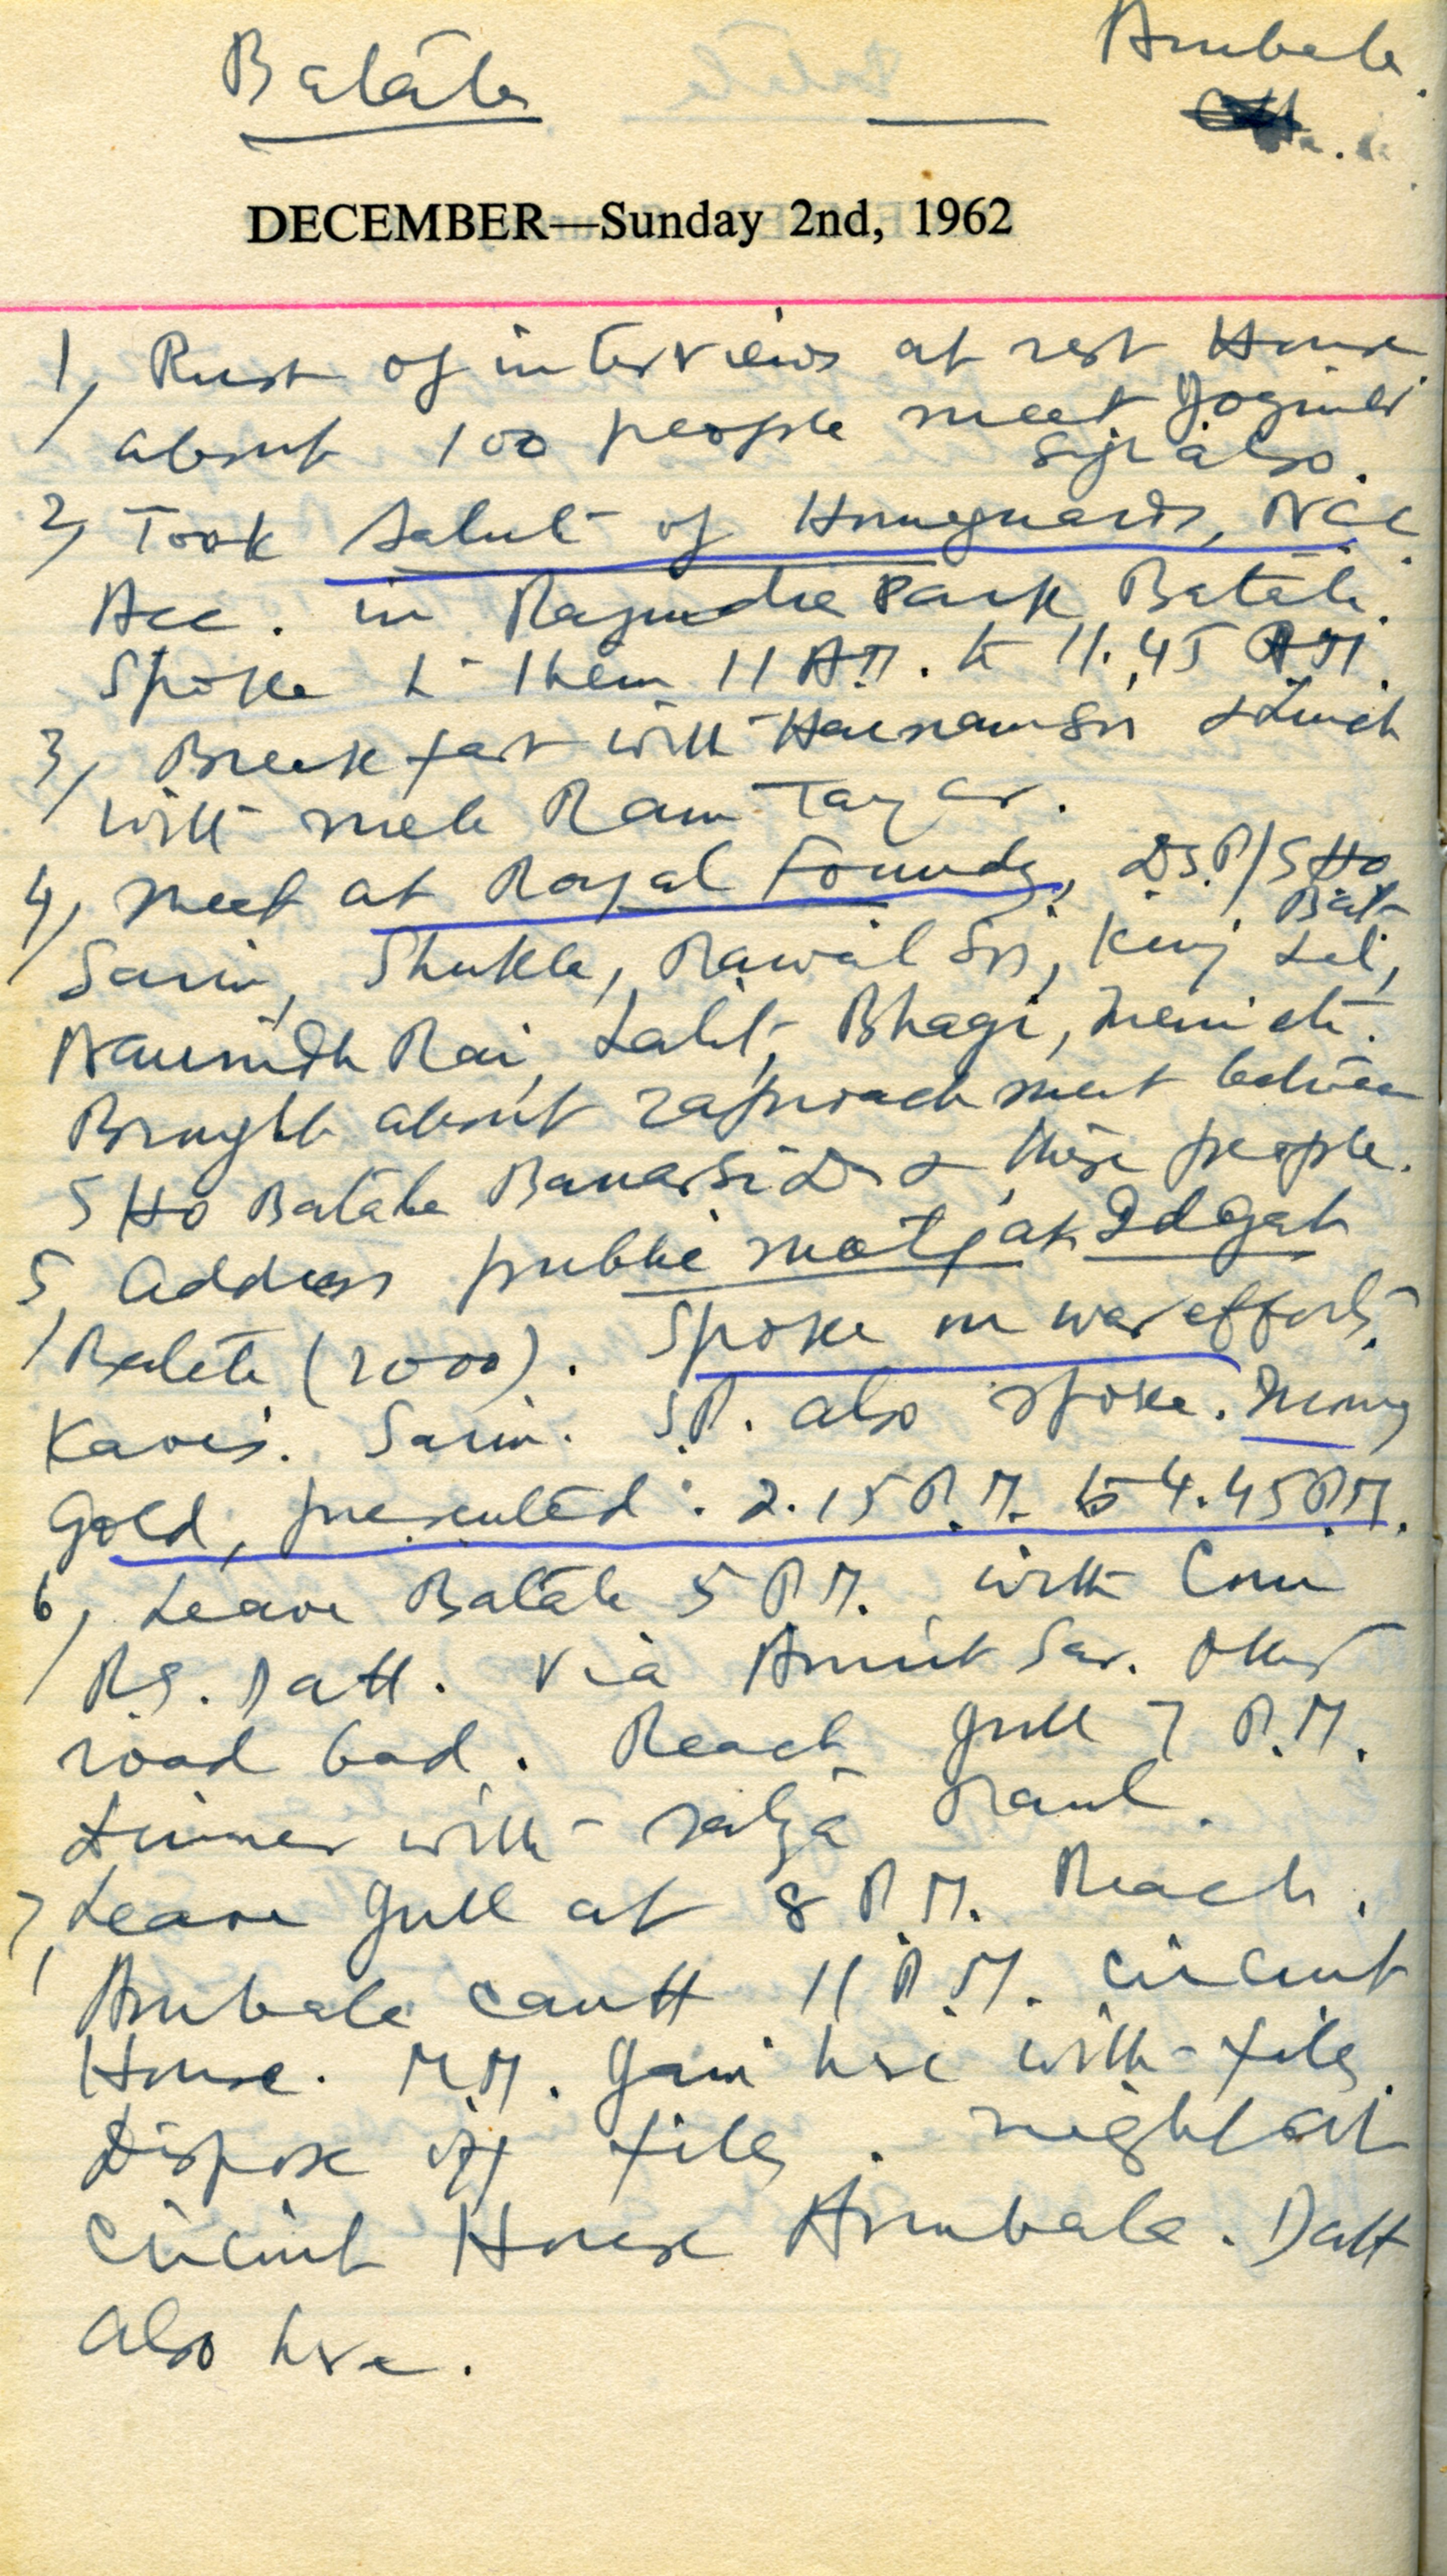 Batala Ambala
DECEMBER—Sunday 2nd, 1962
1, Rush of interviews at rest House
about 100 people meet Joginder
Sgh also.
2, Took Salute of Homeguards, NCC
Acc. in Rajendra Park Batala.
Spoke to them 11 AM. to 11.45 AM.
3, Breakfast with Harnam Sn & Lunch
with Mela Ram Tayar.
4, Meet at Royal Foundry, D.S.P/SHO
Bat
Sarin, Shukla, Rawail Sn, Lal,
Naunidh Rai, Lalit, Bhagi,
Brought about raproachment between
SHO Batala Banarsi D & these people.
5, Address public motg at Idgah
Batala (2000). Spoke on war efforts.
Kavis. Sarin. S.P. also spoke. Money
Gold, presented. 2.15 P.M. to 4.45 P.M.
6, Leave Batala 5 P.M. with Com
R.S. Datt. Via Amritsar. Other
road bad. Reach Jull 7 P.M.
Dinner with Satya Paul.
7, Leave Jull at 8 P.M. Reach
Ambala Cantt 11 P.M. Circuit
House. M.M. Jain here with files.
Dispose off files. night at
Circuit House Ambala. Datt
also here.